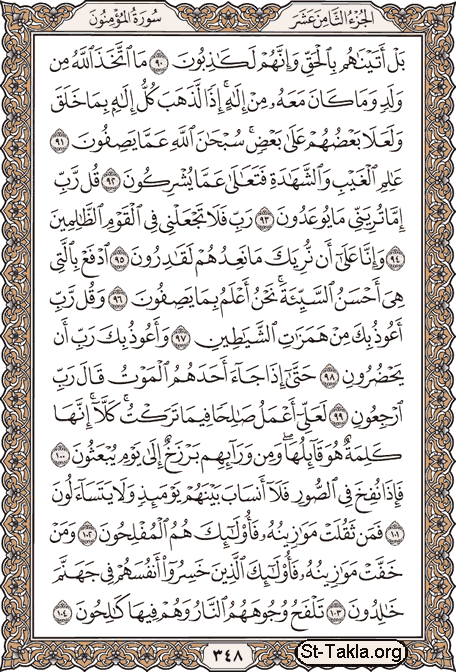 الجزء الثامن عشر
سورة المؤمنون
بَلْ أَتَيْنَٰهُم بِٱلْحَقِّ وَإِنَّهُمْ لَكَٰذِبُونَ ٩٠ مَا ٱتَّخَذَ ٱللَّهُ مِن
وَلَدٍ وَمَا كَانَ مَعَهُۥ مِنْ إِلَٰهٍ ۚ إِذًا لَّذَهَبَ كُلُّ إِلَٰهٍۭ بِمَا خَلَقَ
وَلَعَلَا بَعْضُهُمْ عَلَىٰ بَعْضٍ ۚ سُبْحَٰنَ ٱللَّهِ عَمَّا يَصِفُونَ ٩١
عَٰلِمِ ٱلْغَيْبِ وَٱلشَّهَٰدَةِ فَتَعَٰلَىٰ عَمَّا يُشْرِكُونَ ٩٢ قُل رَّبِّ
إِمَّا تُرِيَنِّى مَا يُوعَدُونَ ٩٣ رَبِّ فَلَا تَجْعَلْنِى فِى ٱلْقَوْمِ ٱلظَّٰلِمِينَ
٩٤ وَإِنَّا عَلَىٰٓ أَن نُّرِيَكَ مَا نَعِدُهُمْ لَقَٰدِرُونَ ٩٥ ٱدْفَعْ بِٱلَّتِى
هِىَ أَحْسَنُ ٱلسَّيِّئَةَ ۚ نَحْنُ أَعْلَمُ بِمَا يَصِفُونَ ٩٦ وَقُل رَّبِّ
أَعُوذُ بِكَ مِنْ هَمَزَٰتِ ٱلشَّيَٰطِينِ ٩٧ وَأَعُوذُ بِكَ رَبِّ أَن
يَحْضُرُونِ ٩٨ حَتَّىٰٓ إِذَا جَآءَ أَحَدَهُمُ ٱلْمَوْتُ قَالَ رَبِّ
ٱرْجِعُونِ ٩٩ لَعَلِّىٓ أَعْمَلُ صَٰلِحًا فِيمَا تَرَكْتُ ۚ كَلَّآ ۚ إِنَّهَا
كَلِمَةٌ هُوَ قَآئِلُهَا ۖ وَمِن وَرَآئِهِم بَرْزَخٌ إِلَىٰ يَوْمِ يُبْعَثُونَ ١٠٠
فَإِذَا نُفِخَ فِى ٱلصُّورِ فَلَآ أَنسَابَ بَيْنَهُمْ يَوْمَئِذٍ وَلَا يَتَسَآءَلُونَ
١٠١ فَمَن ثَقُلَتْ مَوَٰزِينُهُۥ فَأُو۟لَٰٓئِكَ هُمُ ٱلْمُفْلِحُونَ ١٠٢ وَمَنْ
خَفَّتْ مَوَٰزِينُهُۥ فَأُو۟لَٰٓئِكَ ٱلَّذِينَ خَسِرُوٓا۟ أَنفُسَهُمْ فِى جَهَنَّمَ
خَٰلِدُونَ ١٠٣ تَلْفَحُ وُجُوهَهُمُ ٱلنَّارُ وَهُمْ فِيهَا كَٰلِحُونَ ١٠٤
٣٤٨
St-Takla.org